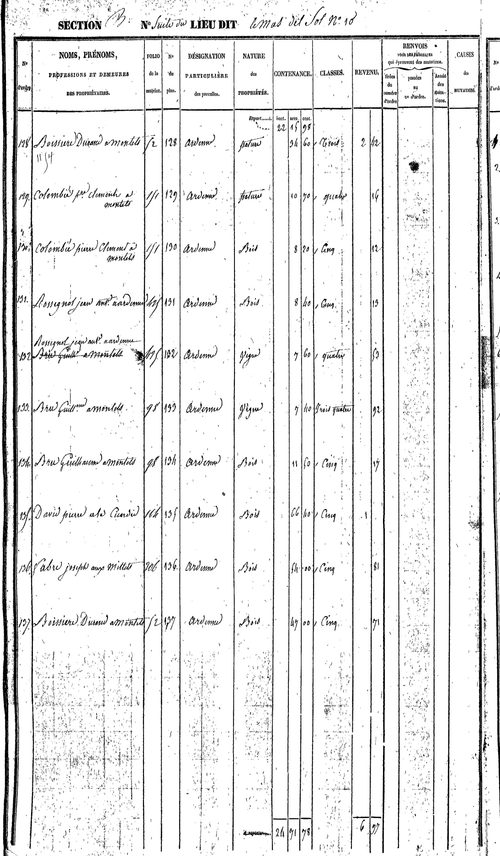 SECTION B. No suite du LIEU DIT le mas del Sol No 18
Nos d'ordre.
NOMS, PRÉNOMS, PROFESSIONS ET DEMEURES DES PROPRIÉTAIRES.
FOLIO de la matrice.
No du plan.
DÉSIGNATION PARTICULIÈRE des parcelles.
NATURE des PROPRIÉTÉS.
CONTENANCE.
CLASSES.
REVENU.
RENVOIS
CAUSES des MUTATIONS.
Report 22 15 98
128 Boissiere Durand a montels 52 128 ardenne pature 34 60 Trois 2 42
129 Colombié pre clement a montels 151 129 ardenne pature 10 70 quatre 16
130 Colombié pierre Clement a montels 151 130 ardenne Bois 8 20 Cinq 12
131 Rossignol jean ant. a ardenne 131 ardenne Bois 8 40 Cinq 13
Rossignol jean ant. a ardenne
132 Bru Guillme a montels 132 ardenne Vigne 7 60 quatre 53
133 Bru Guillme a montels 98 133 ardenne Vigne 7 40 Trois quatre 92
134 Bru Guillaume a montels 98 134 ardenne Bois 11 50 Cinq 17
135 David pierre a la 166 135 ardenne Bois 66 40 Cinq 1
136 Fabre joseph aux millets 306 136 ardenne Bois 54 00 Cinq 81
137 Boissiere Durand a montels 52 137 ardenne Bois 47 00 Cinq 71
24 71 78 6 97